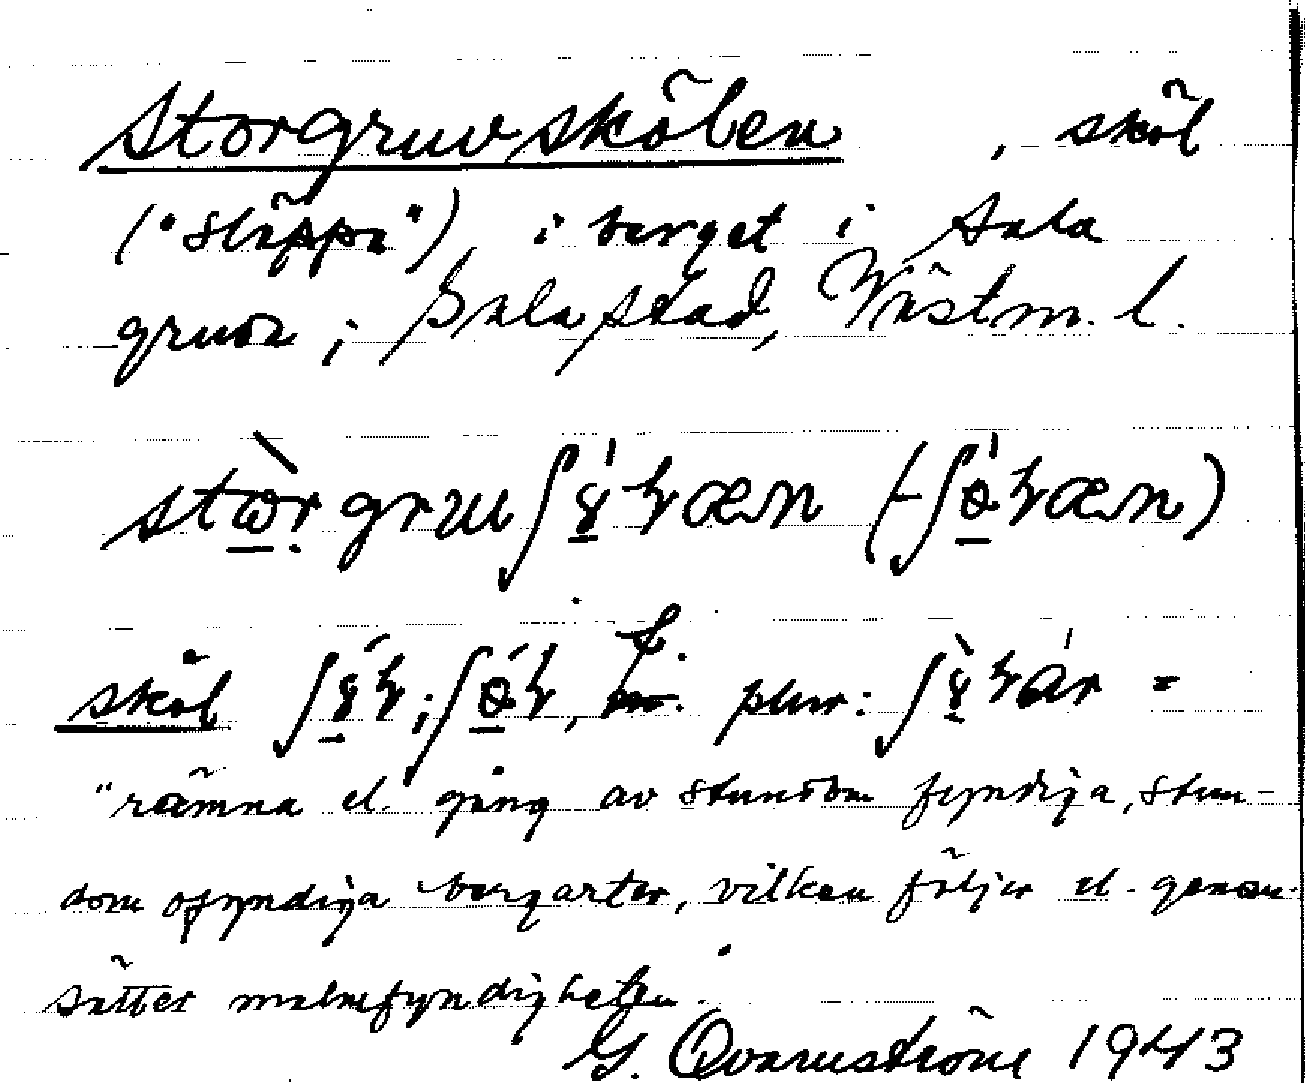 Storgruvskölen , sköl
("släppa"), i berget i Sala
gruva i Sala stad, Västm. l.
sköl plur: =
"rämna el. gång av stundom fyndiga, stun-
dom ofyndiga bergarter, vilken följer el. genom-
sätter malmfyndigheten.
G. Qvarnström 1943